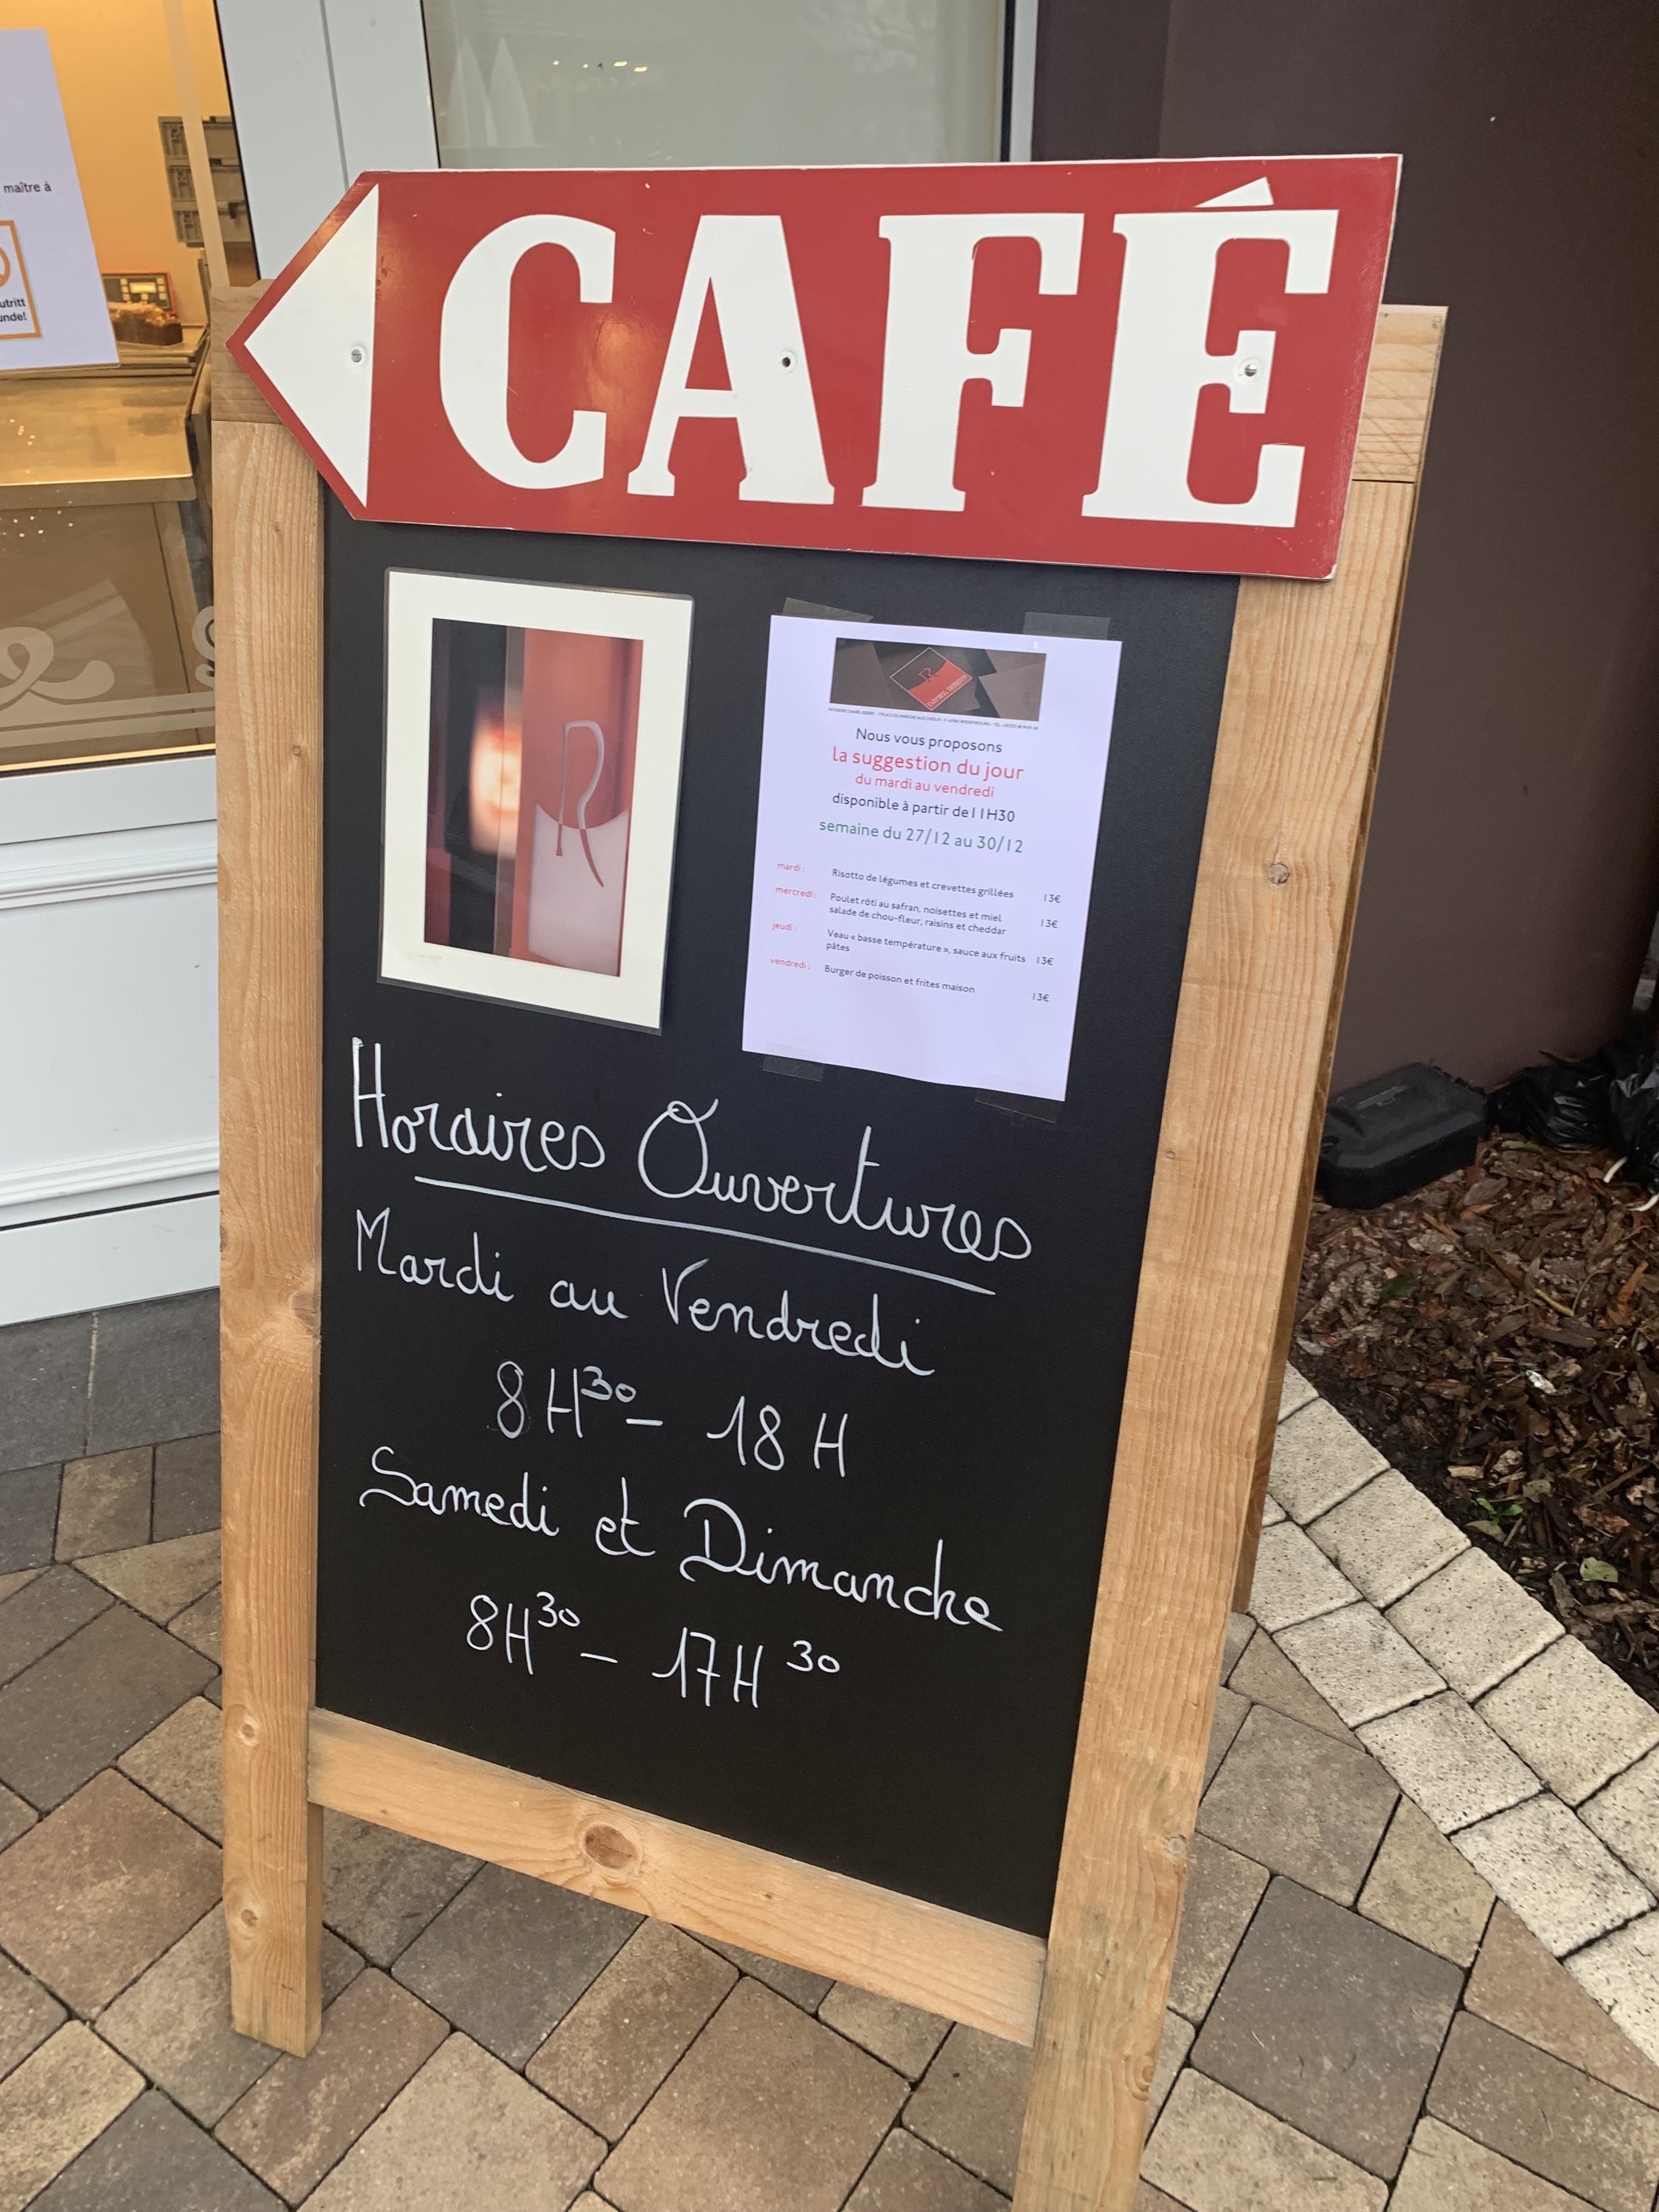 maître à
utritt
unde!
CAFÉ
R
R
Nous vous proposons
la suggestion du jour
du mardi au vendredi
disponible à partir de 11H30
semaine du 27/12 au 30/12
mardi : Risotto de légumes et crevettes grillées 13€
mercredi : Poulet rôti au safran, noisettes et miel 13€
salade de chou-fleur, raisins et cheddar
jeudi : Veau « basse température », sauce aux fruits 13€
pâtes
vendredi : Burger de poisson et frites maison 13€
Horaires Ouvertures
Mardi au Vendredi
8H30 - 18H
Samedi et Dimanche
8H30 - 17H30